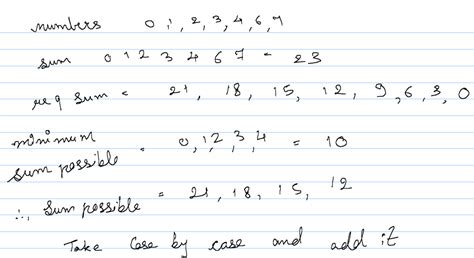 numbers 0, 1, 2, 3, 4, 6, 7
sum 0 1 2 3 4 6 7 = 23
req sum = 21, 18, 15, 12, 9, 6, 3, 0
minimum sum possible = 0, 1, 2, 3, 4 = 10
∴ sum possible = 21, 18, 15, 12
Take case by case and add it